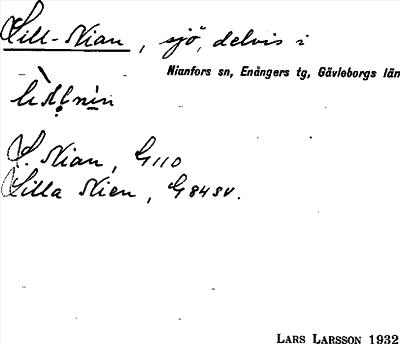 Lill-Nian, sjö, delvis i
Nianfors sn, Enångers tg, Gävleborgs län
L. Nian, G110
Lilla Nien, G84sv.
LARS LARSSON 1932